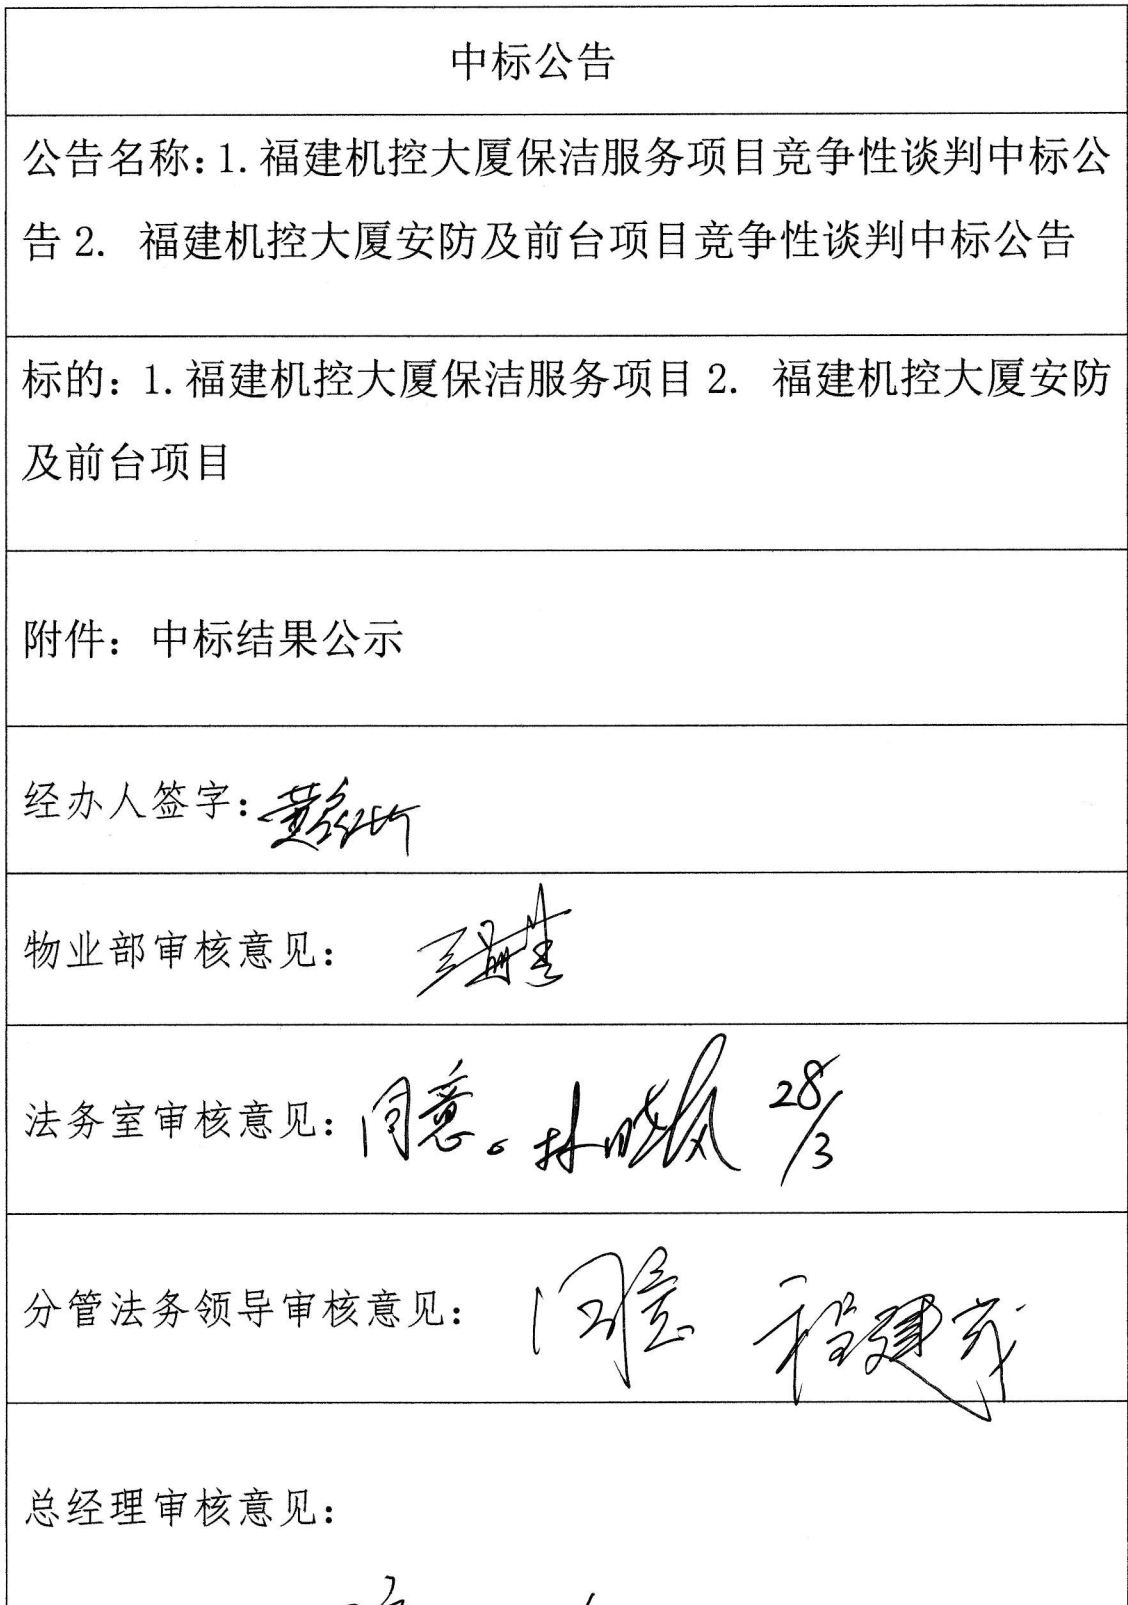 中标公告
公告名称：1.福建机控大厦保洁服务项目竞争性谈判中标公
告 2. 福建机控大厦安防及前台项目竞争性谈判中标公告
标的：1.福建机控大厦保洁服务项目 2. 福建机控大厦安防
及前台项目
附件：中标结果公示
经办人签字：
物业部审核意见：
法务室审核意见：同意。林晓枫 28/3
分管法务领导审核意见：同意 程建茂
总经理审核意见：